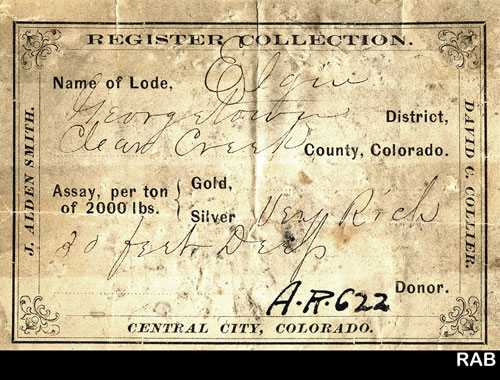 REGISTER COLLECTION.
Name of Lode, Elgin
Georgetown District,
Clear Creek County, Colorado.
Assay, per ton of 2000 lbs. { Gold,
Silver Very Rich
20 feet Deep
A.R.622 Donor.
CENTRAL CITY, COLORADO.
J. ALDEN SMITH.
DAVID C. COLLIER.
RAB